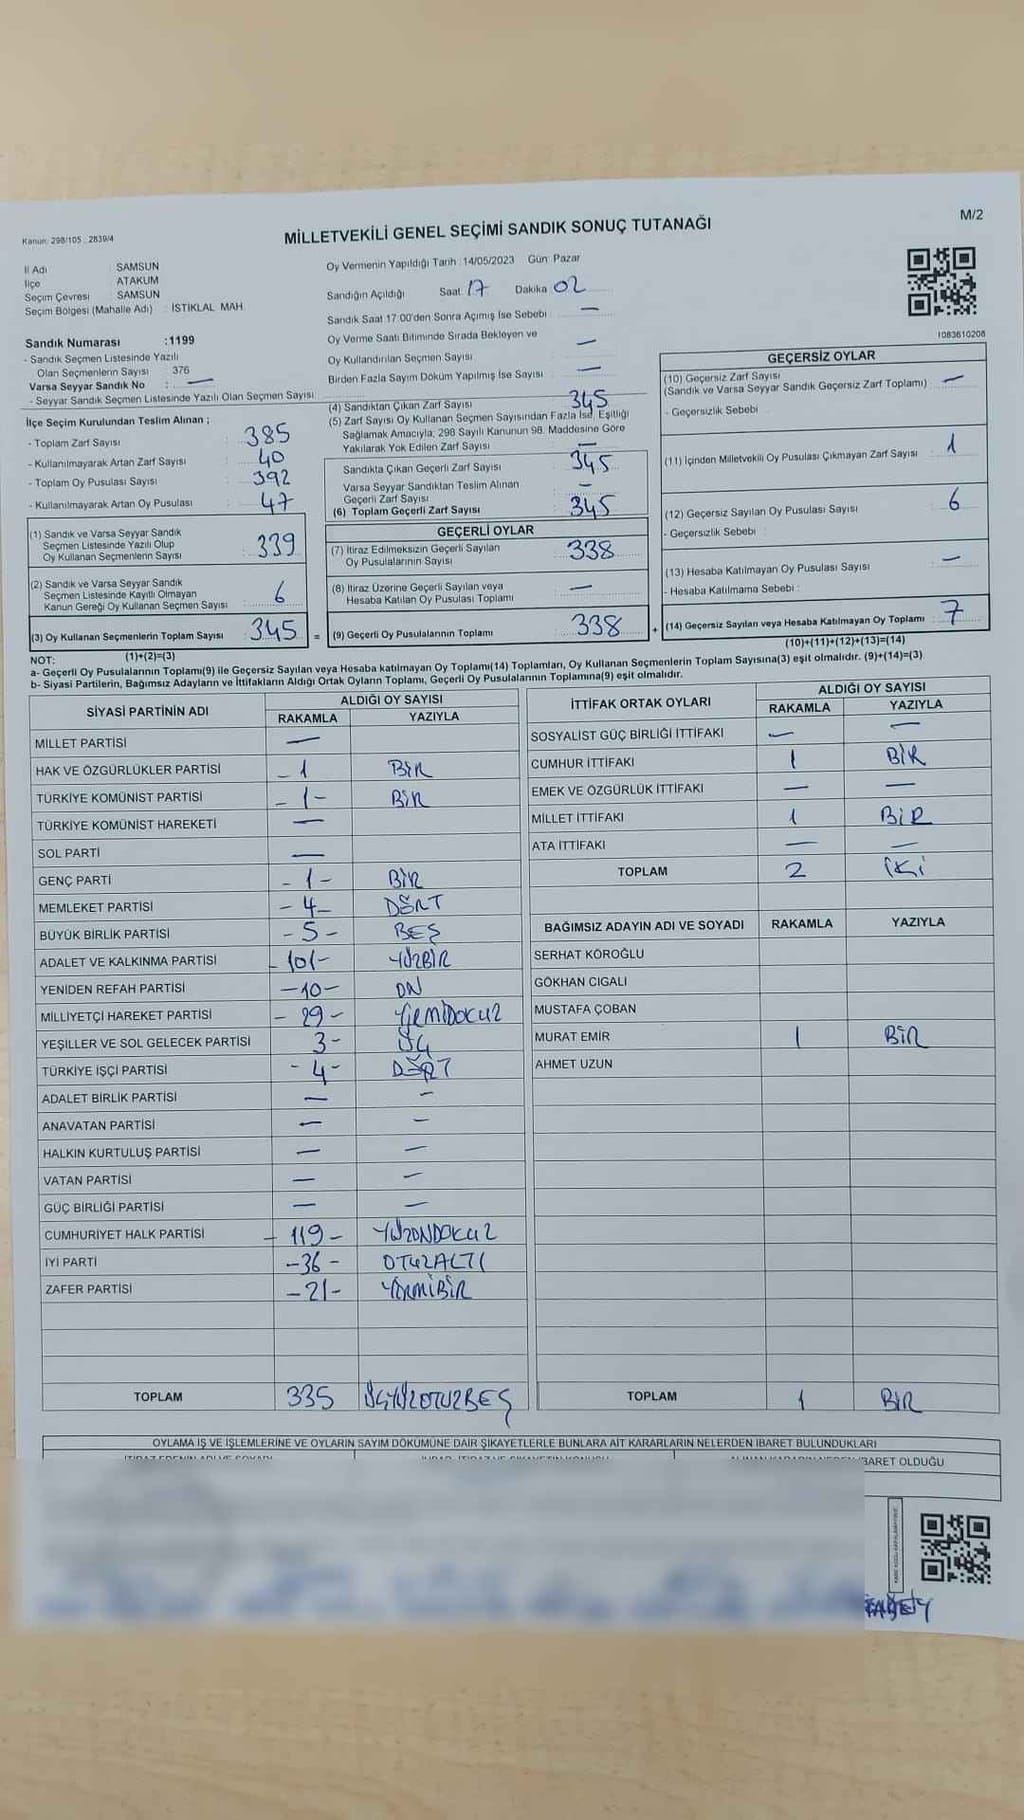 Kanun: 298/105 ; 2839/4
MİLLETVEKİLİ GENEL SEÇİMİ SANDIK SONUÇ TUTANAĞI
M/2
İl Adı SAMSUN
İlçe ATAKUM
Seçim Çevresi SAMSUN
Seçim Bölgesi (Mahalle Adı) : İSTİKLAL MAH
Oy Vermenin Yapıldığı Tarih :14/05/2023 Gün: Pazar
Sandığın Açıldığı Saat: 17 Dakika 02
Sandık Saat 17:00'den Sonra Açımış İse Sebebi —
Oy Verme Saati Bitiminde Sırada Bekleyen ve
Oy Kullandırılan Seçmen Sayısı —
Birden Fazla Sayım Döküm Yapılmış İse Sayısı —
1083610208
Sandık Numarası :1199
- Sandık Seçmen Listesinde Yazılı
Olan Seçmenlerin Sayısı 376
Varsa Seyyar Sandık No : —
- Seyyar Sandık Seçmen Listesinde Yazılı Olan Seçmen Sayısı
İlçe Seçim Kurulundan Teslim Alınan ;
- Toplam Zarf Sayısı : 385
- Kullanılmayarak Artan Zarf Sayısı : 40
- Toplam Oy Pusulası Sayısı : 392
- Kullanılmayarak Artan Oy Pusulası : 47
(1) Sandık ve Varsa Seyyar Sandık
Seçmen Listesinde Yazılı Olup
Oy Kullanan Seçmenlerin Sayısı : 339
(2) Sandık ve Varsa Seyyar Sandık
Seçmen Listesinde Kayıtlı Olmayan
Kanun Gereği Oy Kullanan Seçmen Sayısı : 6
(3) Oy Kullanan Seçmenlerin Toplam Sayısı : 345 =
(1)+(2)=(3)
(4) Sandıktan Çıkan Zarf Sayısı 345
(5) Zarf Sayısı Oy Kullanan Seçmen Sayısından Fazla İse, Eşitliği
Sağlamak Amacıyla, 298 Sayılı Kanunun 98. Maddesine Göre
Yakılarak Yok Edilen Zarf Sayısı —
Sandıkta Çıkan Geçerli Zarf Sayısı 345
Varsa Seyyar Sandıktan Teslim Alınan
Geçerli Zarf Sayısı —
(6) Toplam Geçerli Zarf Sayısı 345
GEÇERLİ OYLAR
(7) İtiraz Edilmeksizin Geçerli Sayılan
Oy Pusulalarının Sayısı 338
(8) İtiraz Üzerine Geçerli Sayılan veya
Hesaba Katılan Oy Pusulası Toplamı —
(9) Geçerli Oy Pusulalarının Toplamı 338 +
GEÇERSİZ OYLAR
(10) Geçersiz Zarf Sayısı
(Sandık ve Varsa Seyyar Sandık Geçersiz Zarf Toplamı) —
- Geçersizlik Sebebi
(11) İçinden Milletvekili Oy Pusulası Çıkmayan Zarf Sayısı : 1
(12) Geçersiz Sayılan Oy Pusulası Sayısı 6
- Geçersizlik Sebebi :
(13) Hesaba Katılmayan Oy Pusulası Sayısı : —
- Hesaba Katılmama Sebebi :
(14) Geçersiz Sayılan veya Hesaba Katılmayan Oy Toplamı : 7
(10)+(11)+(12)+(13)=(14)
NOT:
a- Geçerli Oy Pusulalarının Toplamı(9) ile Geçersiz Sayılan veya Hesaba katılmayan Oy Toplamı(14) Toplamları, Oy Kullanan Seçmenlerin Toplam Sayısına(3) eşit olmalıdır. (9)+(14)=(3)
b- Siyasi Partilerin, Bağımsız Adayların ve İttifakların Aldığı Oyların Toplamı, Geçerli Oy Pusulalarının Toplamına(9) eşit olmalıdır.
SİYASİ PARTİNİN ADI ALDIĞI OY SAYISI
RAKAMLA YAZIYLA
MİLLET PARTİSİ —
HAK VE ÖZGÜRLÜKLER PARTİSİ – 1 BİR
TÜRKİYE KOMÜNİST PARTİSİ – 1 – BİR
TÜRKİYE KOMÜNİST HAREKETİ —
SOL PARTİ —
GENÇ PARTİ – 1 – BİR
MEMLEKET PARTİSİ – 4 – DÖRT
BÜYÜK BİRLİK PARTİSİ – 5 – BEŞ
ADALET VE KALKINMA PARTİSİ – 101 – YÜZBİR
YENİDEN REFAH PARTİSİ – 10 – ON
MİLLİYETÇİ HAREKET PARTİSİ – 29 – YİRMİDOKUZ
YEŞİLLER VE SOL GELECEK PARTİSİ 3 – ÜÇ
TÜRKİYE İŞÇİ PARTİSİ – 4 – DÖRT
ADALET BİRLİK PARTİSİ — —
ANAVATAN PARTİSİ — —
HALKIN KURTULUŞ PARTİSİ — —
VATAN PARTİSİ — —
GÜÇ BİRLİĞİ PARTİSİ — —
CUMHURİYET HALK PARTİSİ – 119 – YÜZONDOKUZ
İYİ PARTİ – 36 – OTUZALTI
ZAFER PARTİSİ – 21 – YİRMİBİR
TOPLAM 335 ÜÇYÜZOTUZBEŞ
İTTİFAK ORTAK OYLARI ALDIĞI OY SAYISI
RAKAMLA YAZIYLA
SOSYALİST GÜÇ BİRLİĞİ İTTİFAKI — —
CUMHUR İTTİFAKI 1 BİR
EMEK VE ÖZGÜRLÜK İTTİFAKI — —
MİLLET İTTİFAKI 1 BİR
ATA İTTİFAKI — —
TOPLAM 2 İKİ
BAĞIMSIZ ADAYIN ADI VE SOYADI RAKAMLA YAZIYLA
SERHAT KÖROĞLU
GÖKHAN CIGALI
MUSTAFA ÇOBAN
MURAT EMİR 1 BİR
AHMET UZUN
TOPLAM 1 BİR
OYLAMA İŞ VE İŞLEMLERİNE VE OYLARIN SAYIM DÖKÜMÜNE DAİR ŞİKAYETLERLE BUNLARA AİT KARARLARIN NELERDEN İBARET BULUNDUKLARI
İBARET OLDUĞU